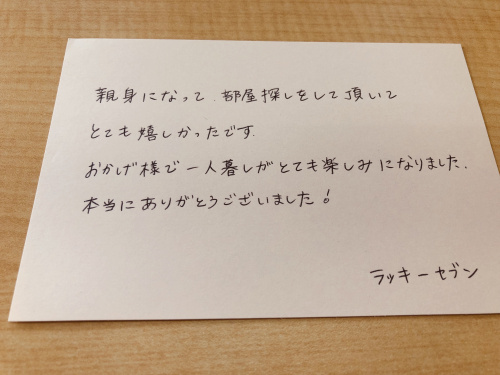 親身になって、部屋探しをして頂いて
とても嬉しかったです.
おかげ様で一人暮しがとても楽しみになりました.
本当にありがとうございました!
ラッキーセブン